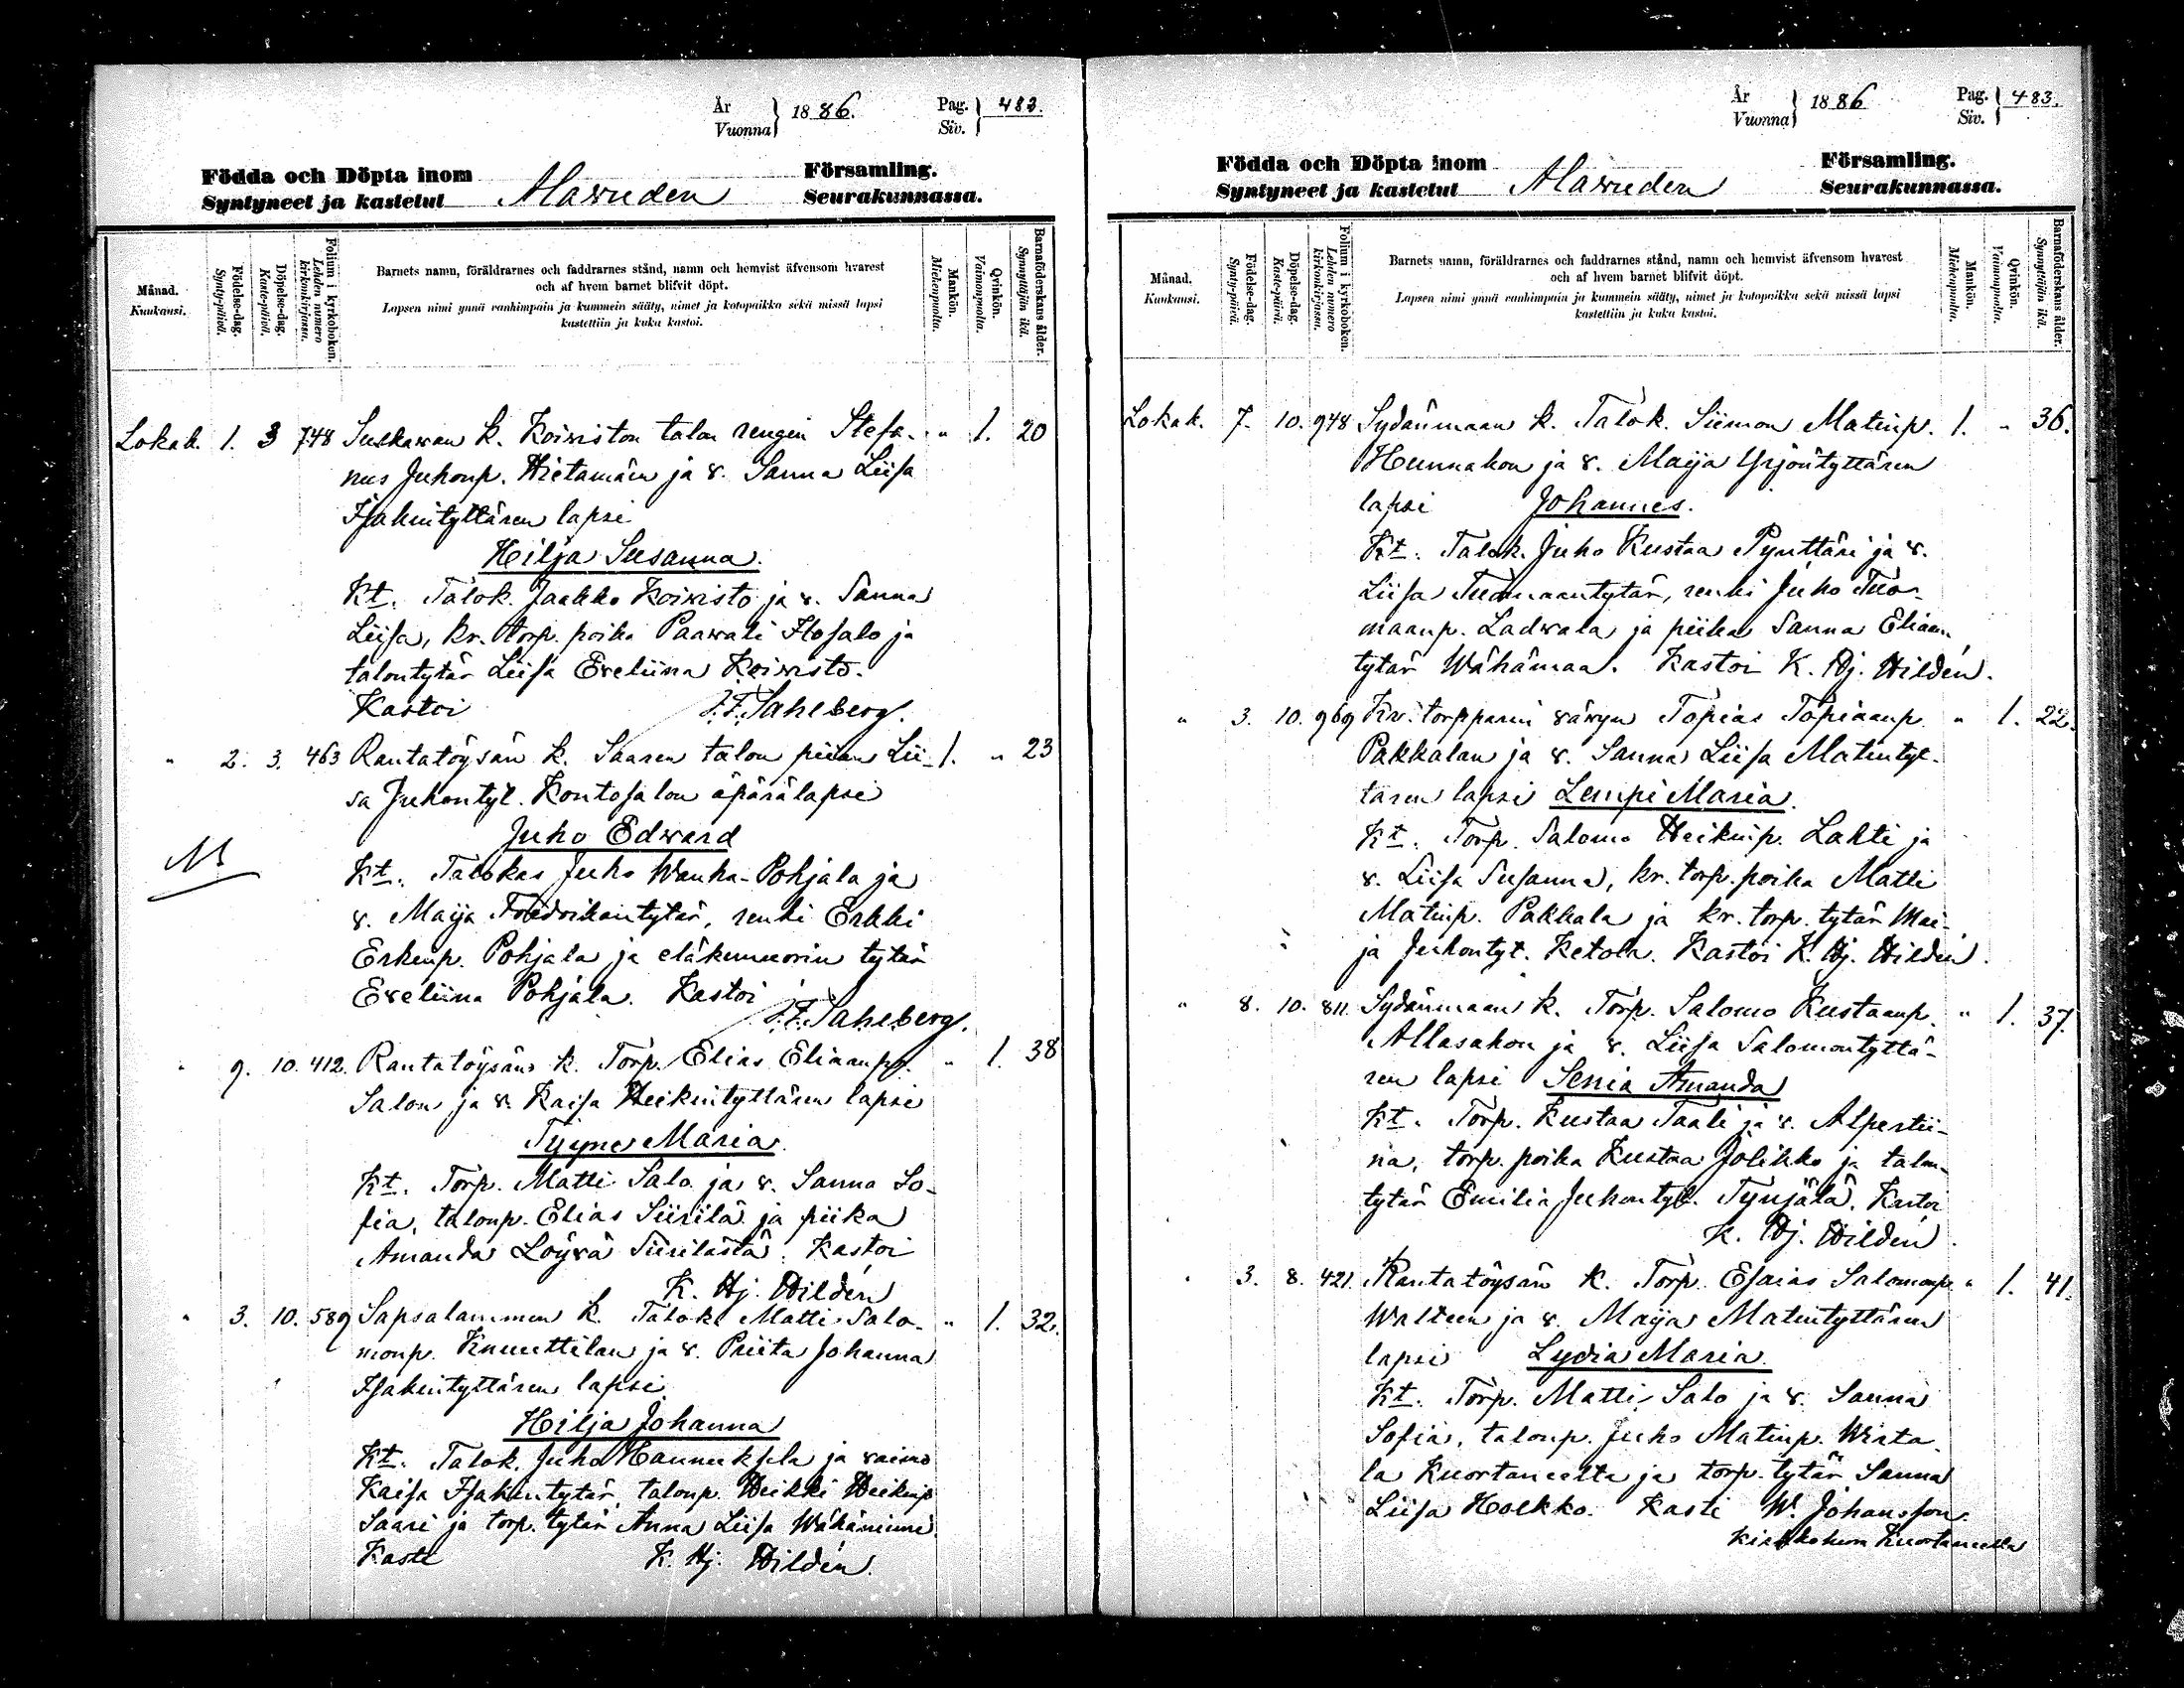 År
Vuonna
1886.
Pag.
Siv.
483.
Födda och Döpta inom
Syntyneet ja kastetut
Alavuden
Församling.
Seurakunnassa.
Månad.
Kuukausi.
Födelse-dag.
Synty-päivä.
Döpelse-dag.
Kaste-päivä.
Folium i kyrkoboken.
Lehden numero
kirkonkirjassa.
Barnets namn, föräldrarnes och faddrarnes stånd, namn och hemvist äfvensom hvarest
och af hvem barnet blifvit döpt.
Lapsen nimi ynnä vanhimpain ja kummein sääty, nimet ja kotopaikka sekä missä lapsi
kastettiin ja kuka kastoi.
Mankön.
Miehenpuolta.
Qvinkön.
Vaimonpuolta.
Barnaföderskans ålder.
Synnyttäjän ikä.
Lokak. 1. 3 748 Suskavan k. Koiviston talon rengin Stefa- " 1. 20
nus Juhonp. Hietamäen ja v. Sanna Liisa
Isakintyttären lapsi
Hilja Susanna.
Kt. Talok. Jaakko Koivisto ja v. Sanna
Liisa, kr. torp. poika Paavali Ilosalo ja
talontytär Liisa Eveliina Koivisto.
Kastoi J. F. Sahlberg.
" 2. 3. 463 Rantatöysän k. Saaren talon piian Lii- 1. " 23
sa Juhontyt. Kontosalon äpärälapsi
Juho Edvard
M
Kt. Talokas Juho Wanha-Pohjala ja
v. Maija Fredrikintytär, renki Erkki
Erkinp. Pohjala ja eläkemuorin tytär
Eveliina Pohjala. Kastoi
J. F. Sahlberg.
" 9. 10. 412. Rantatöysän k. Torp. Elias Eliaanp. " 1. 38
Salon ja v. Kaisa Heikintyttären lapsi
Tyyne Maria.
Kt. Torp. Matti Salo ja v. Sanna So-
fia, talonp. Elias Siirilä ja piika
Amanda Löyvä Siirilästä. Kastoi
K. Hj. Hildén
" 3. 10. 589 Sapsalammen k. Talok. Matti Salo- " 1. 32.
monp. Knuuttilan ja v. Priita Johanna
Isakintyttären lapsi
Hilja Johanna
Kt. Talok. Juho Hannuksela ja vaimo
Kaisa Isakintytär, talonp. Heikki Heikinp.
Saari ja torp. tytär Anna Liisa Wähäniemi.
Kasti K. Hj. Hildén.
År
Vuonna
1886
Pag.
Siv.
483.
Födda och Döpta inom
Syntyneet ja kastetut
Alavuden
Församling.
Seurakunnassa.
Månad.
Kuukausi.
Födelse-dag.
Synty-päivä.
Döpelse-dag.
Kaste-päivä.
Folium i kyrkoboken.
Lehden numero
kirkonkirjassa.
Barnets namn, föräldrarnes och faddrarnes stånd, namn och hemvist äfvensom hvarest
och af hvem barnet blifvit döpt.
Lapsen nimi ynnä vanhimpain ja kummein sääty, nimet ja kotopaikka sekä missä lapsi
kastettiin ja kuka kastoi.
Mankön.
Miehenpuolta.
Qvinkön.
Vaimonpuolta.
Barnaföderskans ålder.
Synnyttäjän ikä.
Lokak. 7. 10. 948 Sydänmaan k. Talok. Siimon Matinp. 1. " 36.
Hunnakon ja v. Maija Yrjöntyttären
lapsi Johannes.
Kt. Talok. Juho Kustaa Pynttäri ja v.
Liisa Tuomaantytär, renki Juho Tuo-
maanp. Ladvala ja piika Sanna Eliaan
tytär Wähämaa. Kastoi K. Hj. Hildén.
" 3. 10. 969 Kr. torpparin vävyn Topias Topiaanp. " 1. 22.
Pakkalan ja v. Sanna Liisa Matintyt-
tären lapsi Lempi Maria.
Kt. Torp. Salomo Heikinp. Lahti ja
v. Liisa Susanna, kr. torp. poika Matti
Matinp. Pakkala ja kr. torp. tytär Mai-
ja Juhontyt. Ketola. Kastoi K. Hj. Hildén.
" 8. 10. 811. Sydänmaan k. Torp. Salomo Kustaanp. " 1. 37.
Allasahon ja v. Liisa Salomontyttä-
ren lapsi Senia Amanda
Kt. Torp. Kustaa Taali ja v. Alpertii-
na, torp. poika Kustaa Jolikko ja talon-
tytär Emilia Juhontyt. Tynjälä. Kastoi
K. Hj. Hildén.
" 3. 8. 421. Rantatöysän k. Torp. Esaias Salomonp. " 1. 41.
Walteen ja v. Maija Matintyttären
lapsi Lydia Maria.
Kt. Torp. Matti Salo ja v. Sanna
Sofia, talonp. Juho Matinp. Wirta-
la Kuortaneelta ja torp. tytär Sanna
Liisa Holkko. Kasti W. Johansson.
Kuortaneella